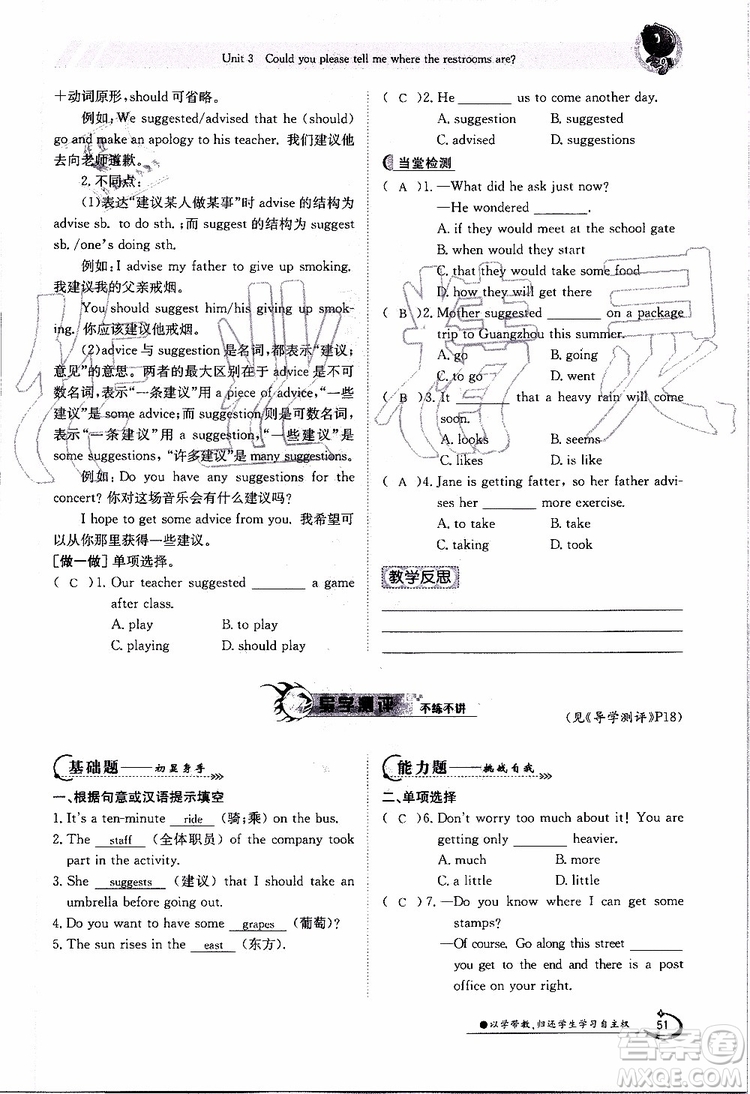 Unit 3 Could you please tell me where the restrooms are?
＋动词原形, should 可省略。
例如, We suggested/advised that he (should)
go and make an apology to his teacher. 我们建议他
去向老师道歉。
2. 不同点:
(1)表达“建议某人做某事”时 advise 的结构为
advise sb. to do sth.;而 suggest 的结构为 suggest
sb. /one's doing sth.
例如:I advise my father to give up smoking.
我建议我的父亲戒烟。
You should suggest him/his giving up smok-
ing. 你应该建议他戒烟。
(2)advice 与 suggestion 是名词,都表示“建议;
意见”的意思。两者的最大区别在于 advice 是不可
数名词,表示“一条建议”用 a piece of advice,“一些
建议”是 some advice;而 suggestion 则是可数名词,
表示“一条建议”用 a suggestion,“一些建议”是
some suggestions, “许多建议”是 many suggestions.
例如:Do you have any suggestions for the
concert? 你对这场音乐会有什么建议吗?
I hope to get some advice from you. 我希望可
以从你那里获得一些建议。
[做一做] 单项选择。
( C )1. Our teacher suggested ________ a game
after class.
A. play B. to play
C. playing D. should play
( C )2. He ________ us to come another day.
A. suggestion B. suggested
C. advised D. suggestions
当堂检测
( A )1. —What did he ask just now?
—He wondered ________.
A. if they would meet at the school gate
B. when would they start
C. that they would take some food
D. how they will get there
( B )2. Mother suggested ________ on a package
trip to Guangzhou this summer.
A. go B. going
C. to go D. went
( B )3. It ________ that a heavy rain will come
soon.
A. looks B. seems
C. likes D. is like
( A )4. Jane is getting fatter, so her father advi-
ses her ________ more exercise.
A. to take B. take
C. taking D. took
教学反思
导学测评 不练不讲
(见《导学测评》P18)
基础题——初显身手
一、根据句意或汉语提示填空
1. It's a ten-minute ride (骑;乘) on the bus.
2. The staff (全体职员) of the company took
part in the activity.
3. She suggests (建议) that I should take an
umbrella before going out.
4. Do you want to have some grapes (葡萄)?
5. The sun rises in the east (东方).
能力题——挑战自我
二、单项选择
( C )6. Don't worry too much about it! You are
getting only ________ heavier.
A. much B. more
C. a little D. little
( C )7. — Do you know where I can get some
stamps?
—Of course. Go along this street ________
you get to the end and there is a post
office on your right.
●以学带教,归还学生学习自主权 51
作业精灵
答案圈
MXQE.COM